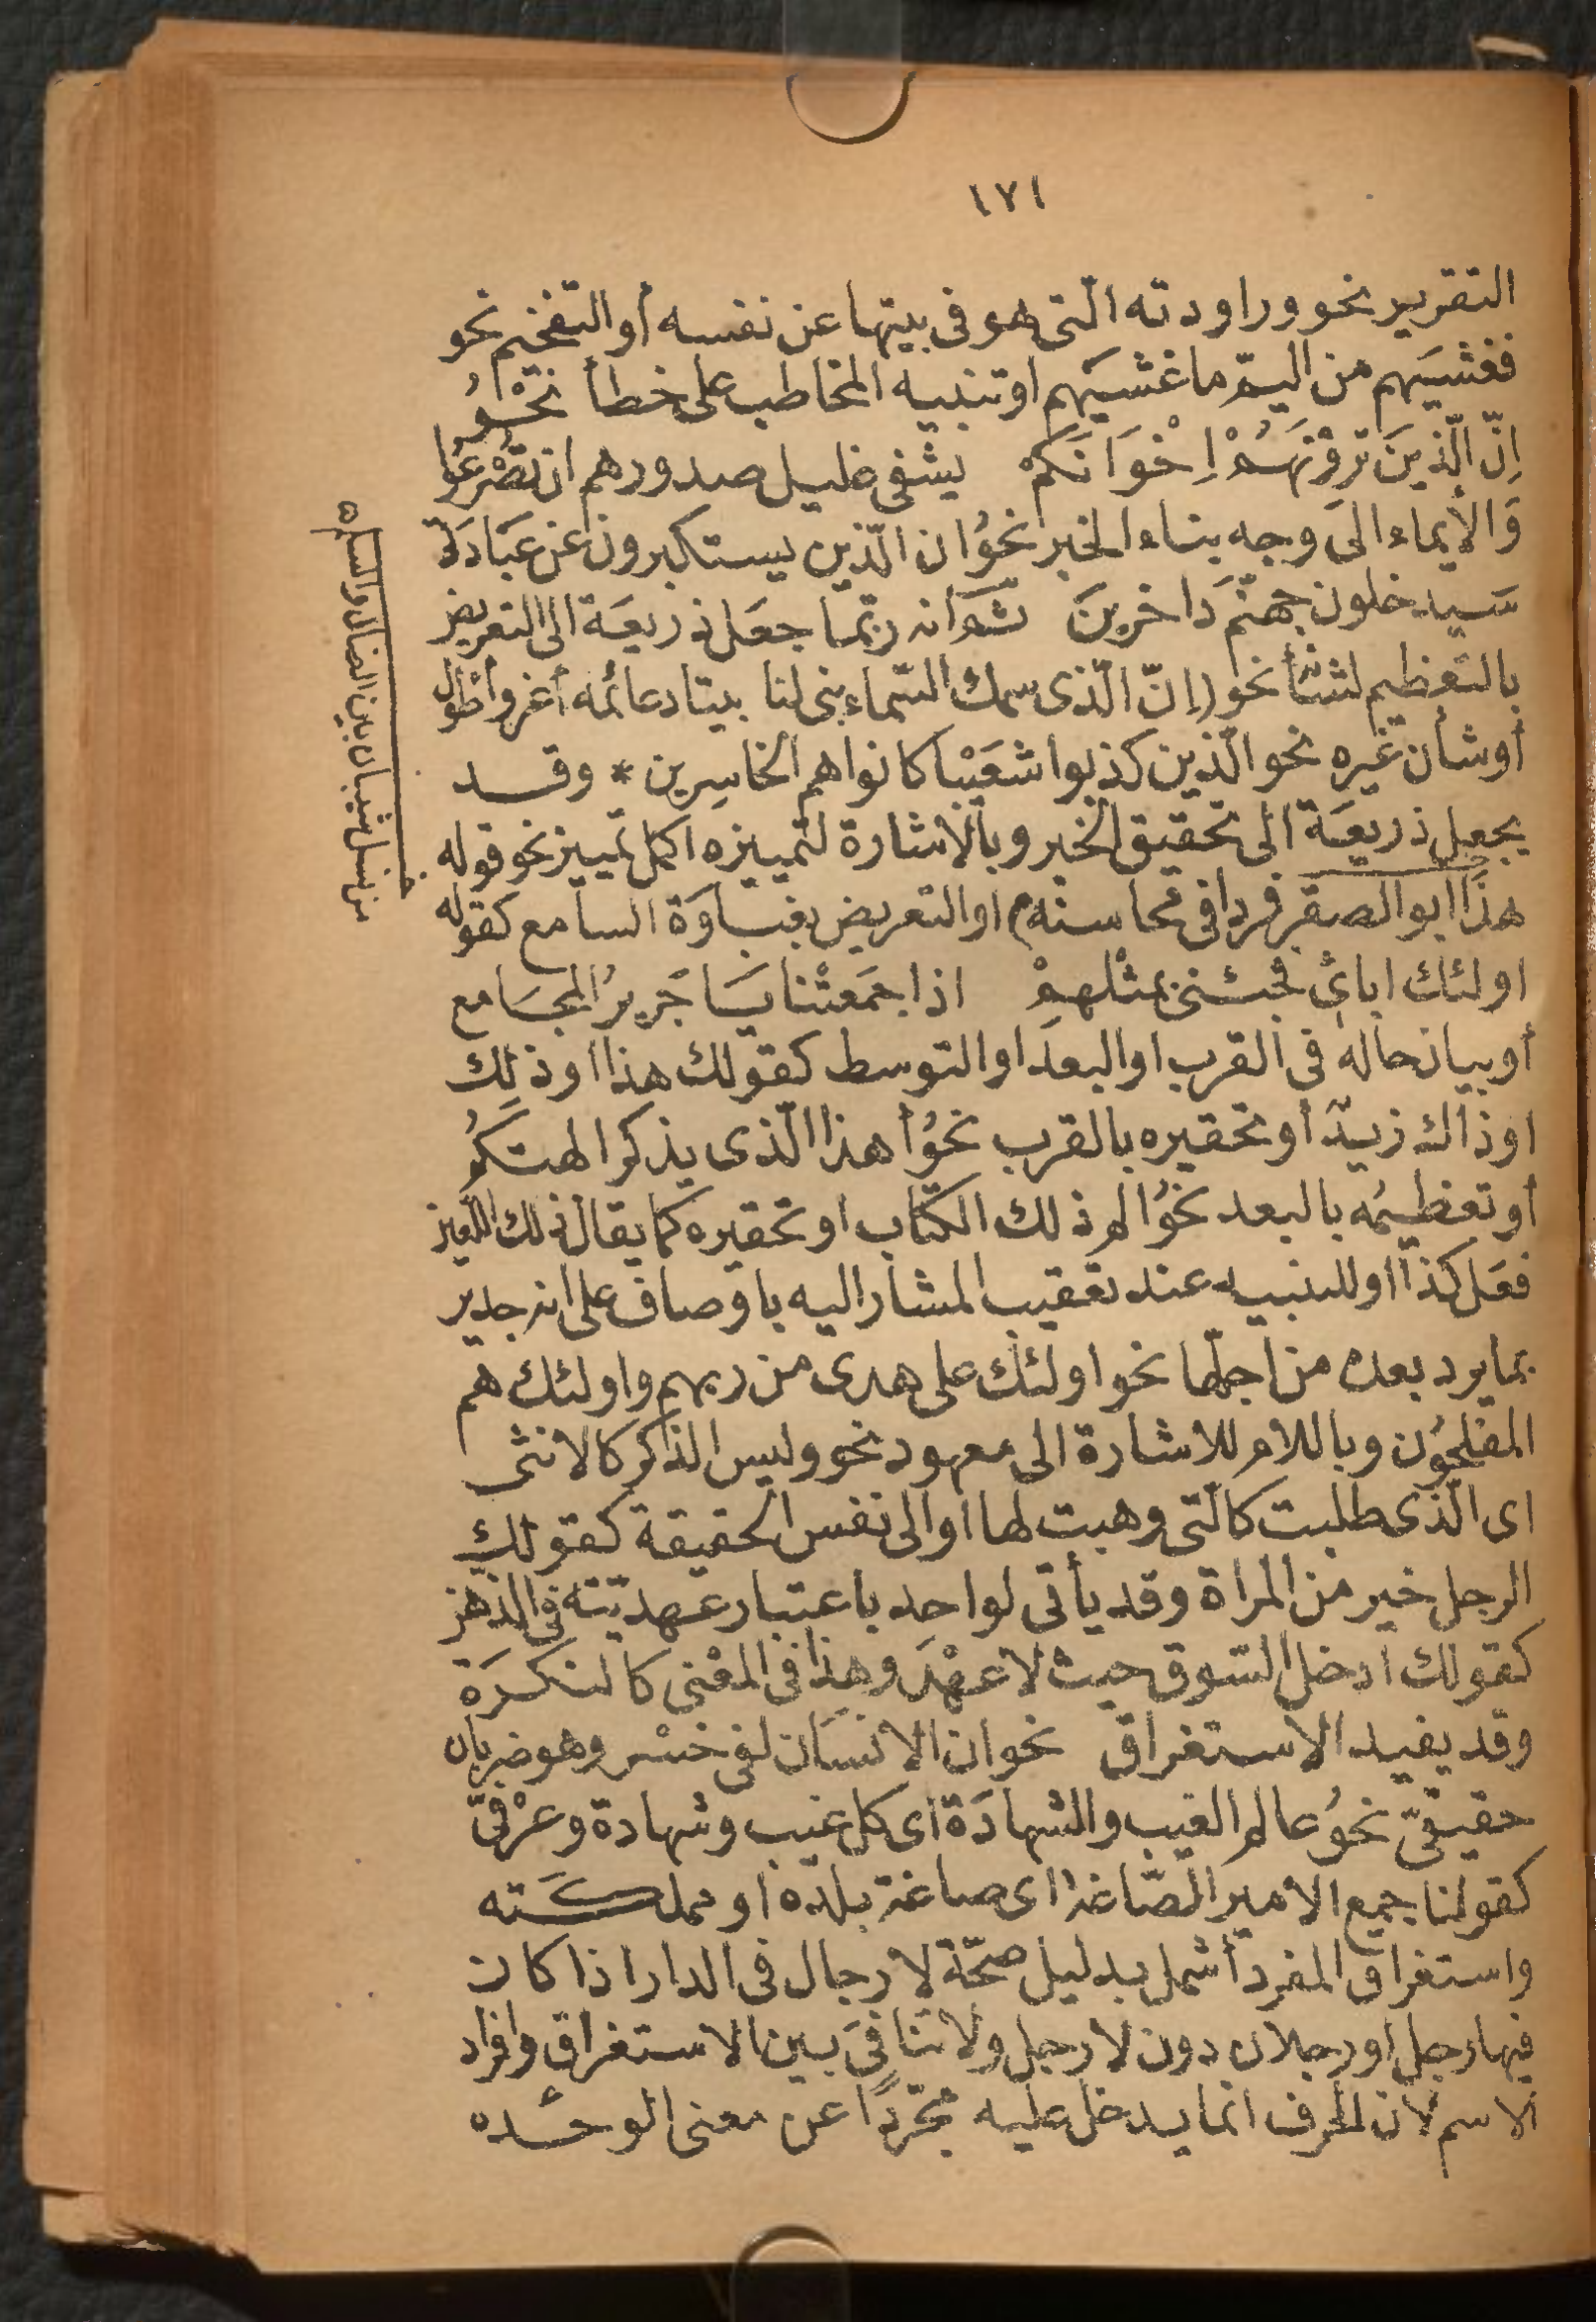 ١٧١
التقرير نحو وراودته الّتى هو فى بيتها عن نفسه أو التفخيم نحو
فغشيَهم من اليمّ ما غشيَهم او تنبيه المخاطب على خطأ نحْوُ
اِنّ الّذينَ ترَوْنَهُمْ اِخْوَانَكمْ يشفى غليل صدورهم ان تُصْرَعُوا
وَالأيماء الىَ وجه بناء الخبر نحوُ ان الّذين يستكبرون عن عبَادَتى
سَيدخلون جهنّم دَاخرينَ ثمّ أنه ربّما جعَل ذريعَة الى التعريض
بالتعظيم لشأنه نحو (إنّ الّذى سمك السّماء بنى لنا بيتا دعائمه أعز وأطول
أو شأن غيره نحو الّذين كذبوا شعَيْبا كانوا هم الخاسِرين * وقد
يجعل ذريعَة الى تحقيق الخبر وبالاشارة لتمييزه اكمل تمييز نحو قوله
هذَا ابو الصقر فردا فى محاسنه) او التعريض بغباوَة السامع كقوله
اولئك ابائى فجئنى بمثْلهِمْ اذا جمَعتْنا يَا جَريرُ المجَامع
أو بيان حاله فى القرب او البعد او التوسط كقولك هذا او ذلِك
او ذاك زيد أو تحقيره بالقرب نحوُ أهذا الّذى يذكر الهتكمُ
أو تعظيمُه بالبعد نحوُ الم ذلك الكتاب او تحقيره كما يقال ذلك اللعين
فعَل كذا او للتنبيه عند تعقيب المشار اليه باوصاف على انه جدير
بما يرد بعده من اجلها نحو اولئك على هدى من ربهم واولئك هم
المفلحوُن وباللام للاشارة الى معهود نحو وليس الذكر كالانثى
اى الّذى طلبت كالّتى وهبت لها او الى نفس الحقيقة كقولك
الرجل خير من المراة وقد يأتى لواحد باعتبار عهديّته فى الذهن
كقولك ادخل السّوق حيث لا عهْدَ وهذا فى المعْنى كالنكرَة
وقد يفيد الاستغراق نحو ان الانسَان لفى خسْر وهو ضربان
حقيقىّ نحوُ عالم الغيب والشهادَة اى كل غيب وشهادة وعرْفىّ
كقولنا جمع الامير الصّاغة اى صاغة بلده او مملكَته
واستغراق المفرد أشمل بدليل صحّة لا رجال فى الدار اذا كان
فيها رجل او رجلان دون لا رجل ولا تنافىَ بين الاستغراق وافراد
الاسم لان الحرف انما يدخل عليه مجرّدًا عن معنى الوحده
من نسل شيبان بين الضال والسلم